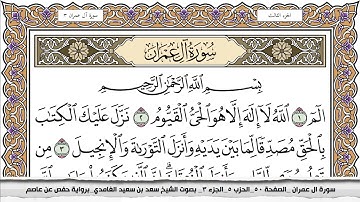 الجزء الثالث
سورة آل عمران ٣
سُورَةُ آلِ عِمْرَانَ
بِسْمِ اللَّهِ الرَّحْمَٰنِ الرَّحِيمِ
الٓمٓ ١ اللَّهُ لَا إِلَٰهَ إِلَّا هُوَ الْحَيُّ الْقَيُّومُ ٢ نَزَّلَ عَلَيْكَ الْكِتَٰبَ
بِالْحَقِّ مُصَدِّقًا لِّمَا بَيْنَ يَدَيْهِ وَأَنزَلَ التَّوْرَىٰةَ وَالْإِنجِيلَ ٣ مِن
سورة ال عمران _الصفحة ٥٠ _الحزب ٥_ الجزء ٣ _ بصوت الشيخ سعد بن سعيد الغامدي _برواية حفص عن عاصم